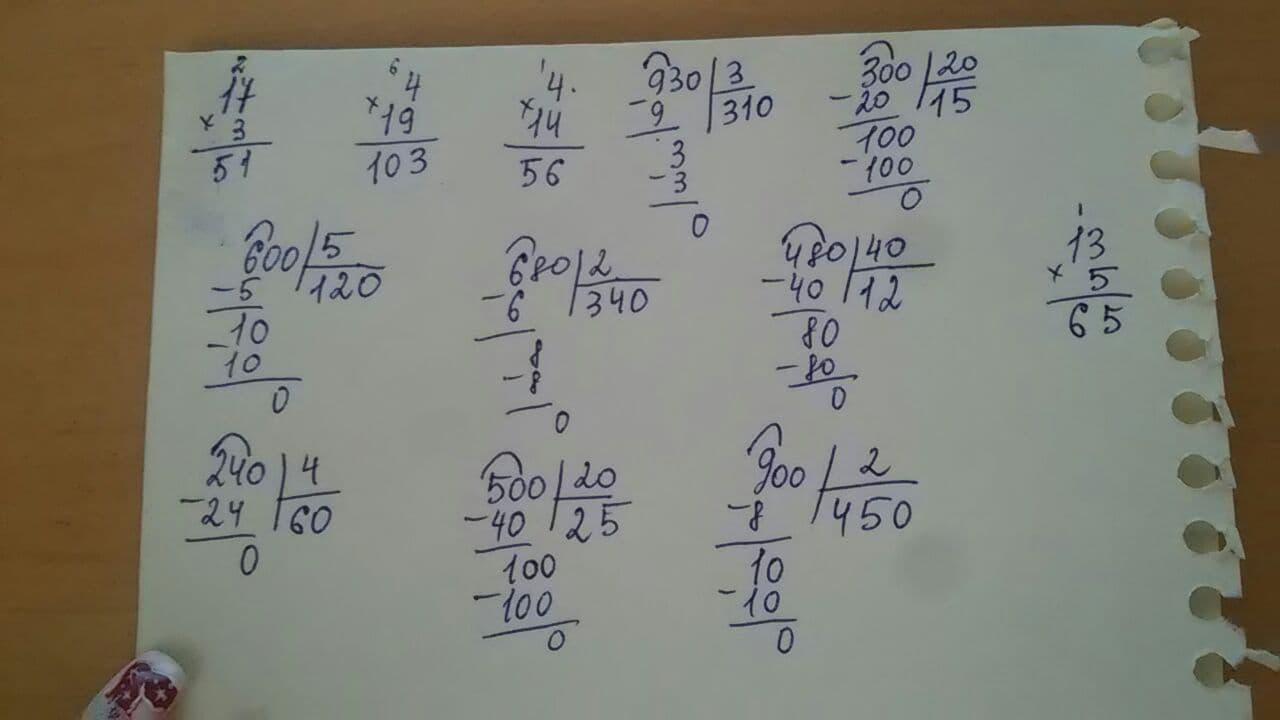 2
17
× 3
51
6
4
× 19
103
1
4.
× 14
56
930 | 3
- 9 | 310
3
- 3
0
300 | 20
- 20 | 15
100
- 100
0
600 | 5
- 5 | 120
- 10
10
0
680 | 2
- 6 | 340
8
- 8
0
480 | 40
- 40 | 12
80
- 80
0
1
13
× 5
65
240 | 4
- 24 | 60
0
500 | 20
- 40 | 25
100
- 100
0
900 | 2
- 8 | 450
10
- 10
0